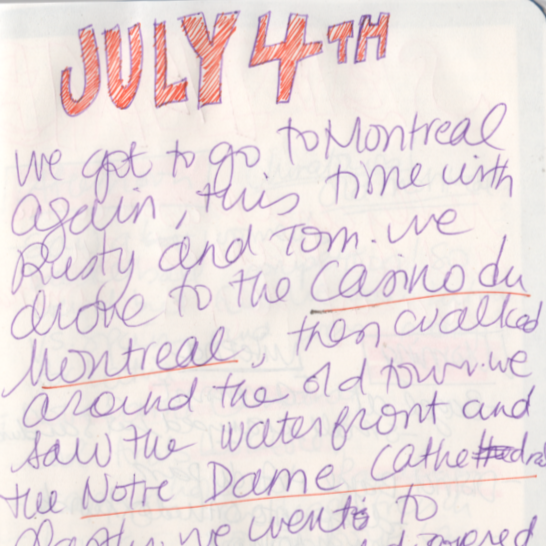 JULY 4TH
we got to go to Montreal
again, this time with
Rusty and Tom. we
drove to the Casino du
Montreal, then walked
around the old town. we
saw the waterfront and
the Notre Dame Cathedral
we went to